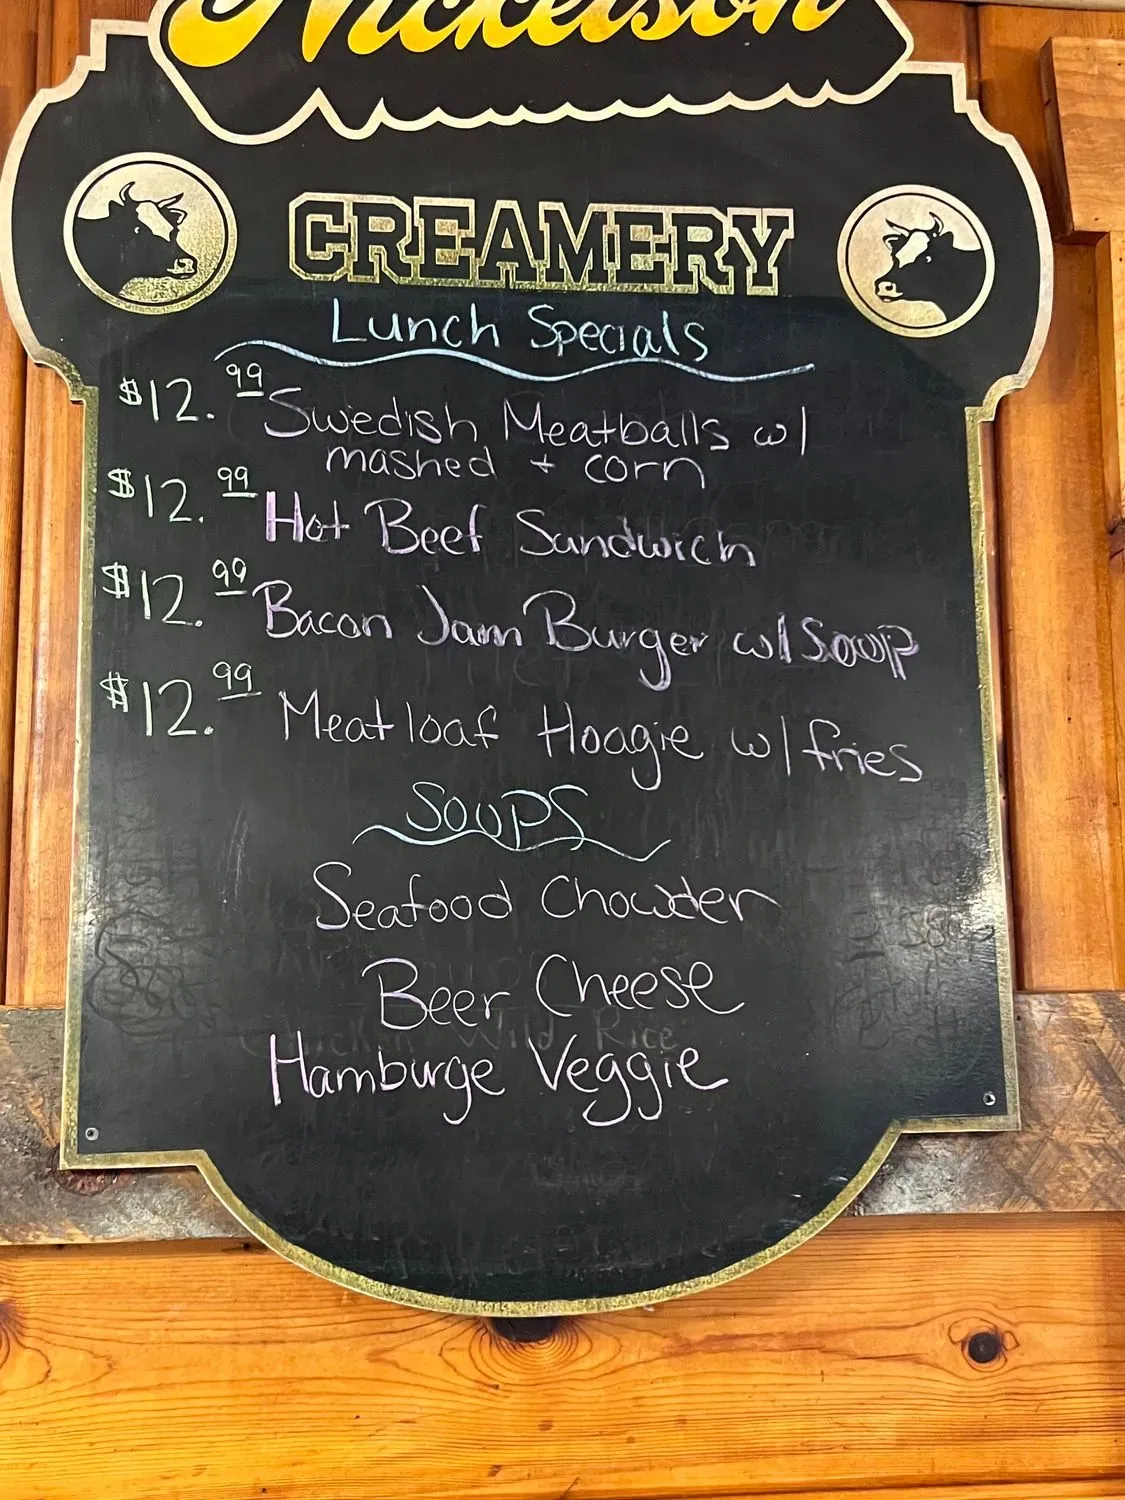 Nickelson
CREAMERY
Lunch Specials
$12.99 Swedish Meatballs w/
mashed + corn
$12.99 Hot Beef Sandwich
$12.99 Bacon Jam Burger w/ Soup
$12.99 Meatloaf Hoagie w/ fries
SOUPS
Seafood Chowder
Beer Cheese
Chicken Wild Rice
Hamburge Veggie